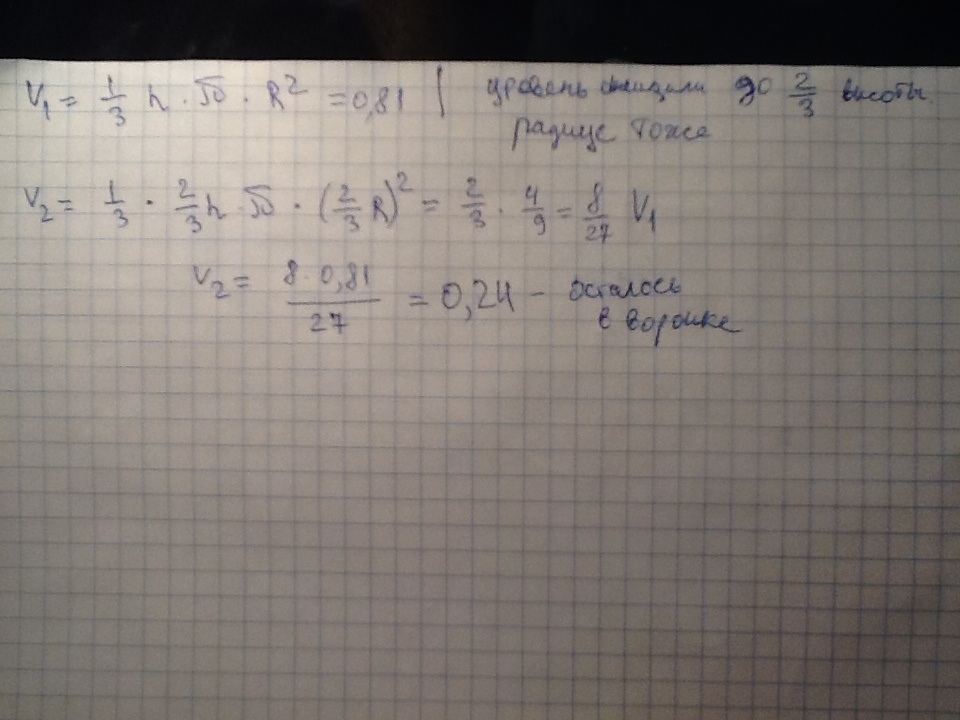 V₁ = 1/3 h · π · R² = 0,81 | уровень снизили до 2/3 высоты.
радиус тоже
V₂ = 1/3 · 2/3 h · π · (2/3 R)² = 2/3 · 4/9 = 8/27 V₁
V₂ = 8·0,81/27 = 0,24 – осталось
в воронке